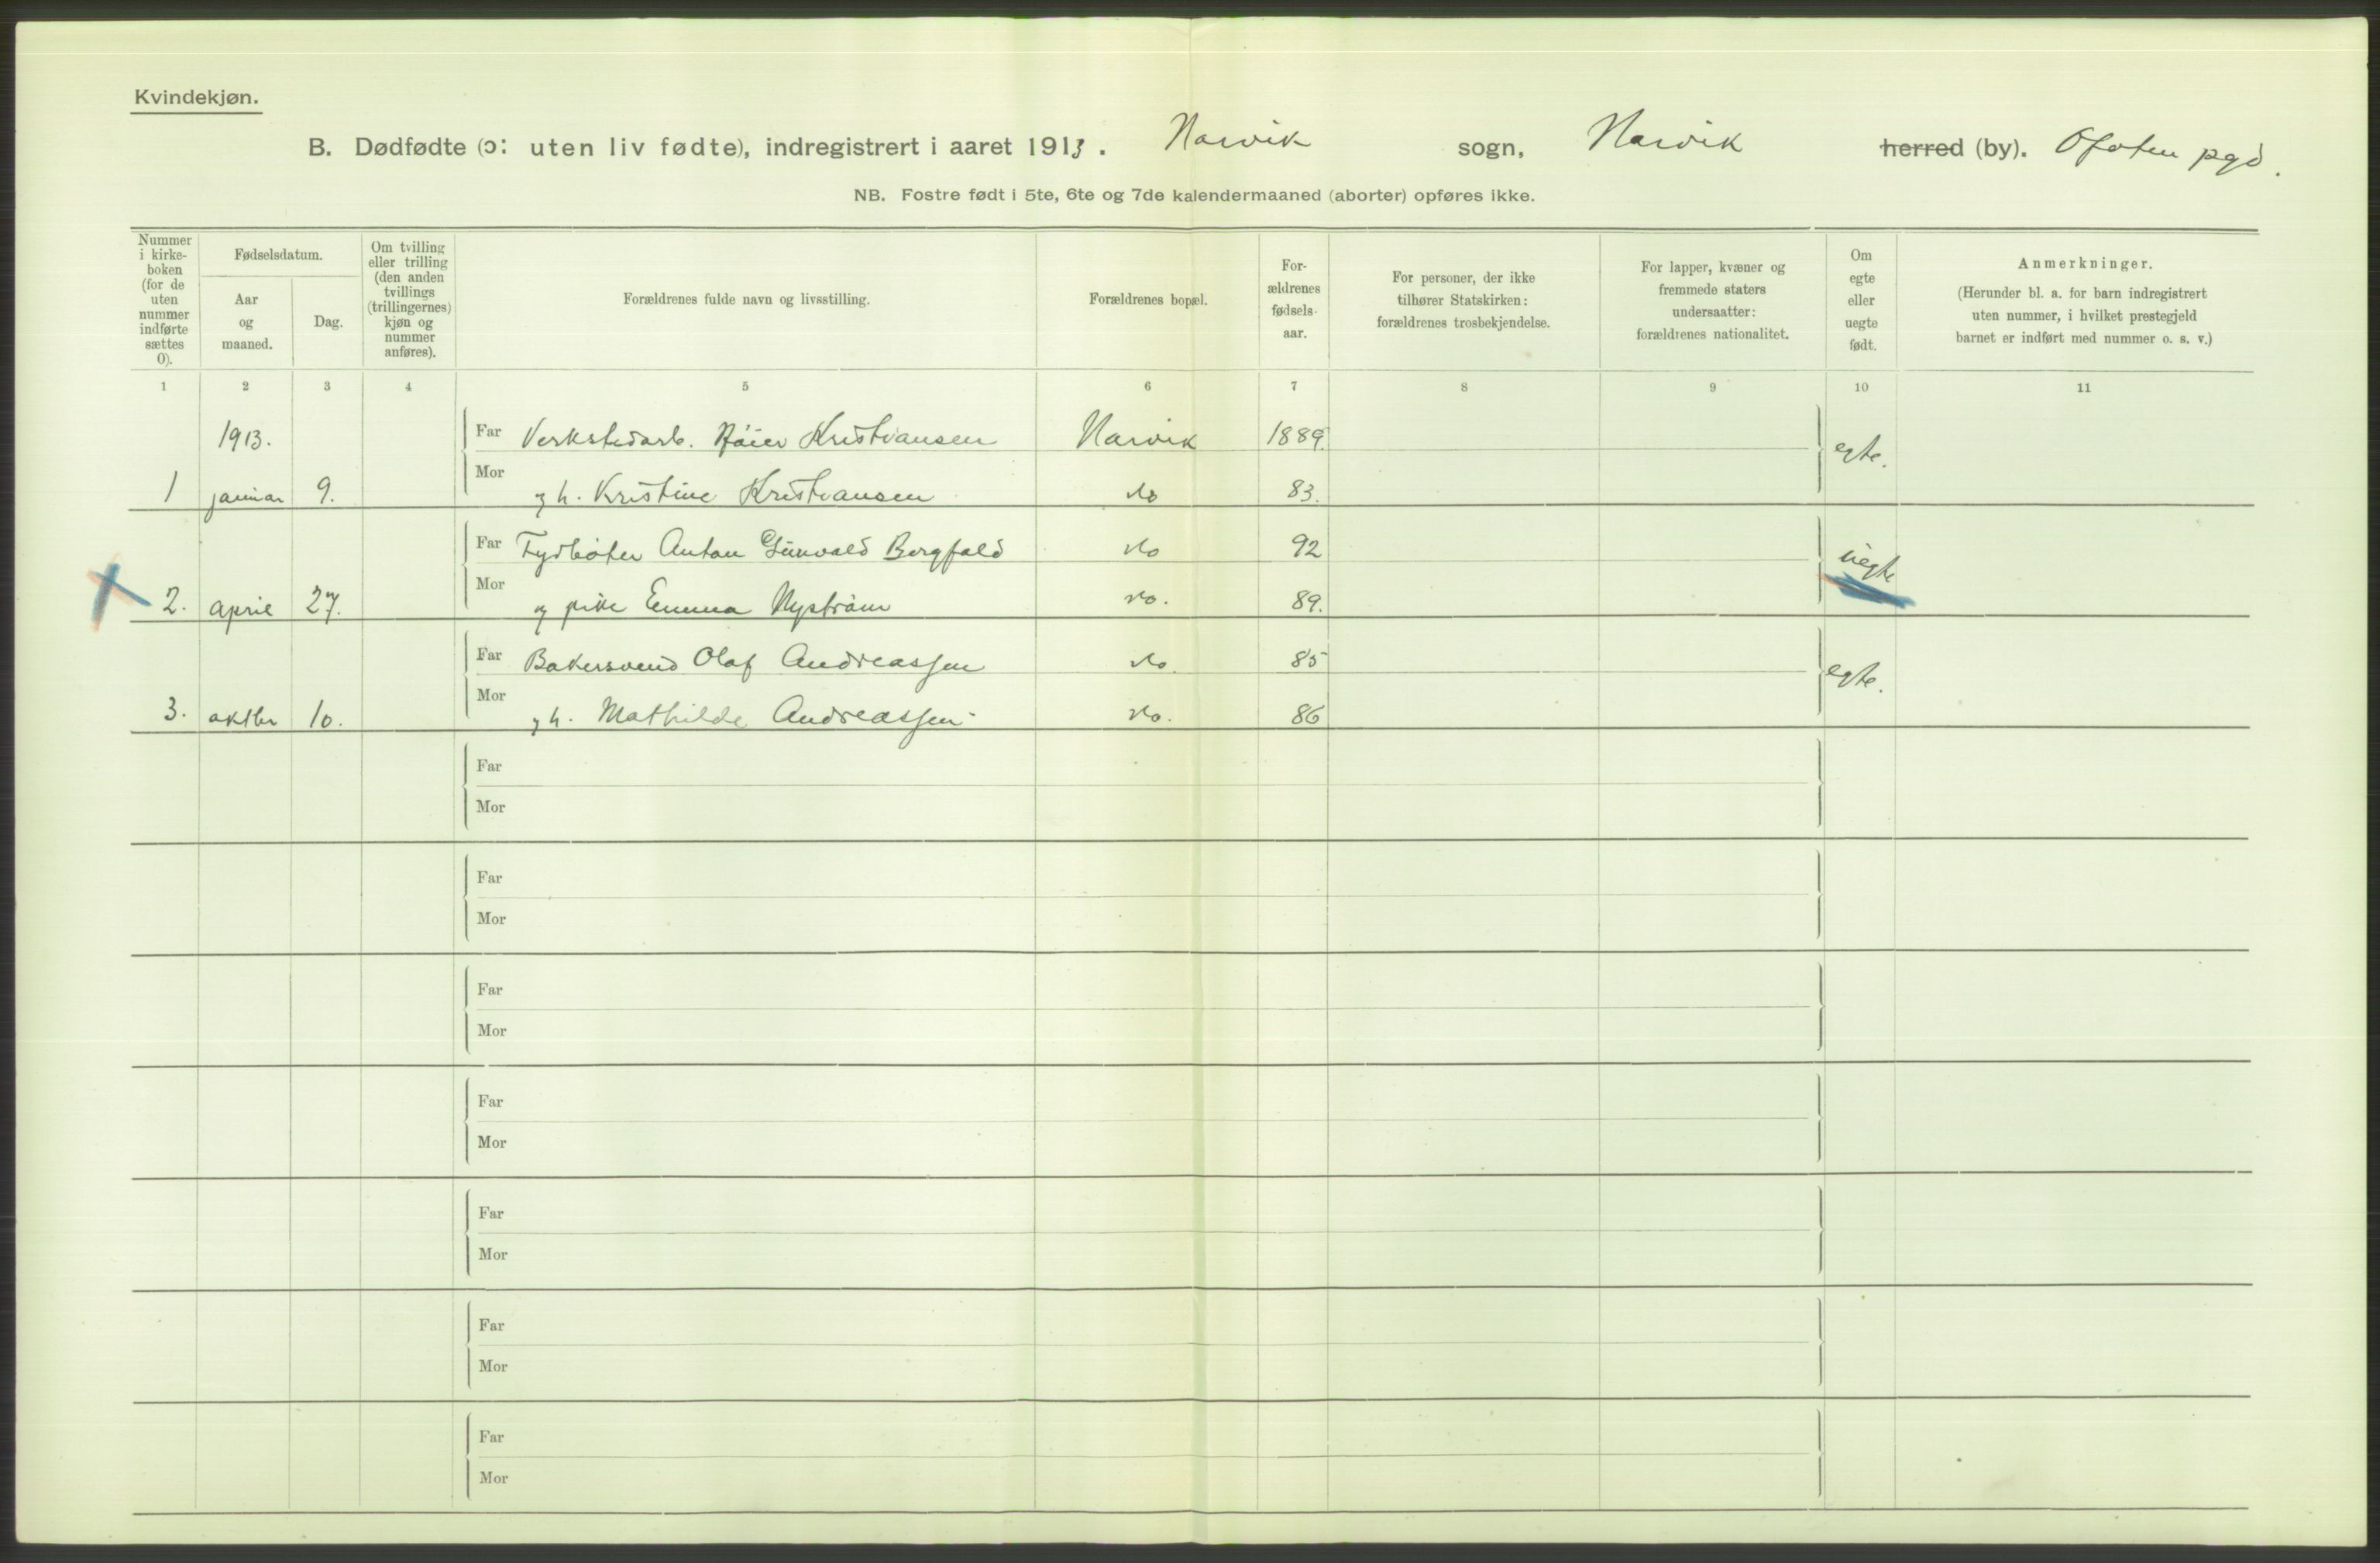 Kvindekjøn.
B. Dødfødte (ɔ: uten liv fødte), indregistrert i aaret 1913. Narvik sogn, Narvik herred (by). Ofoten pgd.
NB. Fostre født i 5te, 6te og 7de kalendermaaned (aborter) opføres ikke.
Nummer i kirke-boken (for de uten nummer indførte sættes 0).
Fødselsdatum.
Aar og maaned.
Dag.
Om tvilling eller trilling (den anden tvillings (trillingernes) kjøn og nummer anføres).
Forældrenes fulde navn og livsstilling.
Forældrenes bopæl.
For-ældrenes fødsels-aar.
For personer, der ikke tilhører Statskirken: forældrenes trosbekjendelse.
For lapper, kvæner og fremmede staters undersaatter: forældrenes nationalitet.
Om egte eller uegte født.
Anmerkninger.
(Herunder bl. a. for barn indregistrert uten nummer, i hvilket prestegjeld barnet er indført med nummer o. s. v.)
1 2 3 4 5 6 7 8 9 10 11
1913. Far Verkstedarb. Kristiansen Narvik 1889. egte.
1 januar 9. Mor og h. Kristine Kristiansen do 83.
Far Anton Gunvald Bergfald do 92 uegte
2. april 27. Mor og pike Emma Nystrøm do. 89.
Far Bakersvend Olaf Andreassen do. 85 egte.
3. oktbr 10. Mor og h. Mathilde Andreassen do. 86
Far
Mor
Far
Mor
Far
Mor
Far
Mor
Far
Mor
Far
Mor
Far
Mor